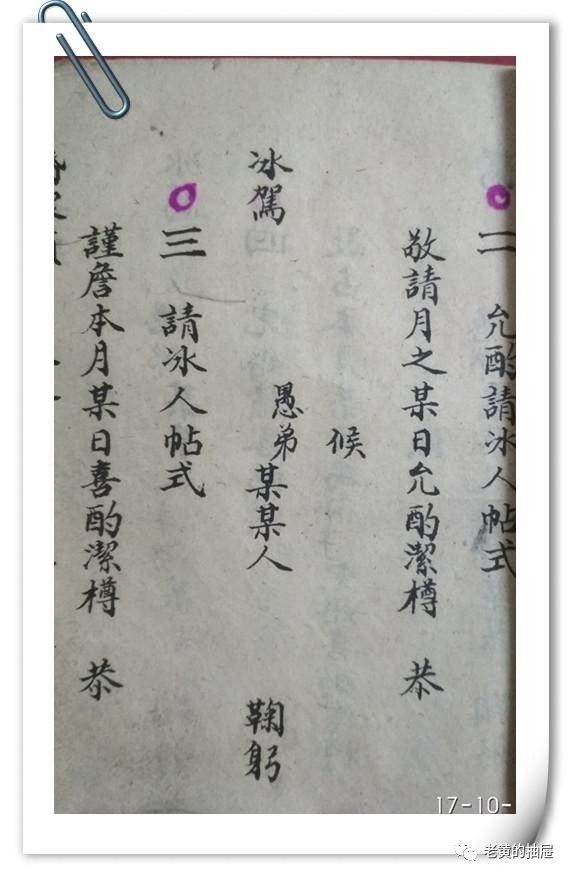 二 允酌請冰人帖式
敬請月之某日允酌潔樽 恭
候
冰駕 愚弟某某人 鞠躬
三 請冰人帖式
謹詹本月某日喜酌潔樽 恭
17-10-
老黄的抽屉